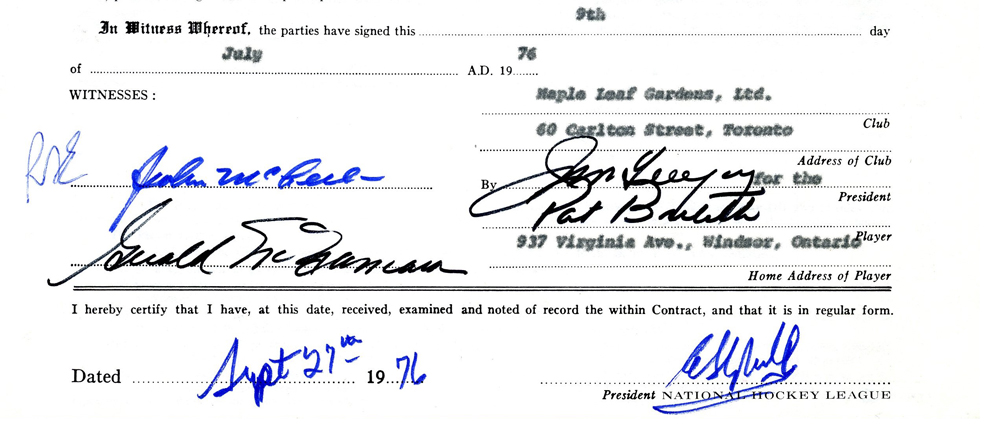 In Witness Whereof, the parties have signed this 9th day
of July A.D. 19 76
WITNESSES :
Maple Leaf Gardens, Ltd.
Club
60 Carlton Street, Toronto
Address of Club
John
By Jim Gregory for the
President
Pat
Player
Gerald
937 Virginia Ave., Windsor, Ontario
Home Address of Player
I hereby certify that I have, at this date, received, examined and noted of record the within Contract, and that it is in regular form.
Dated Sept 27th 19 76
President NATIONAL HOCKEY LEAGUE